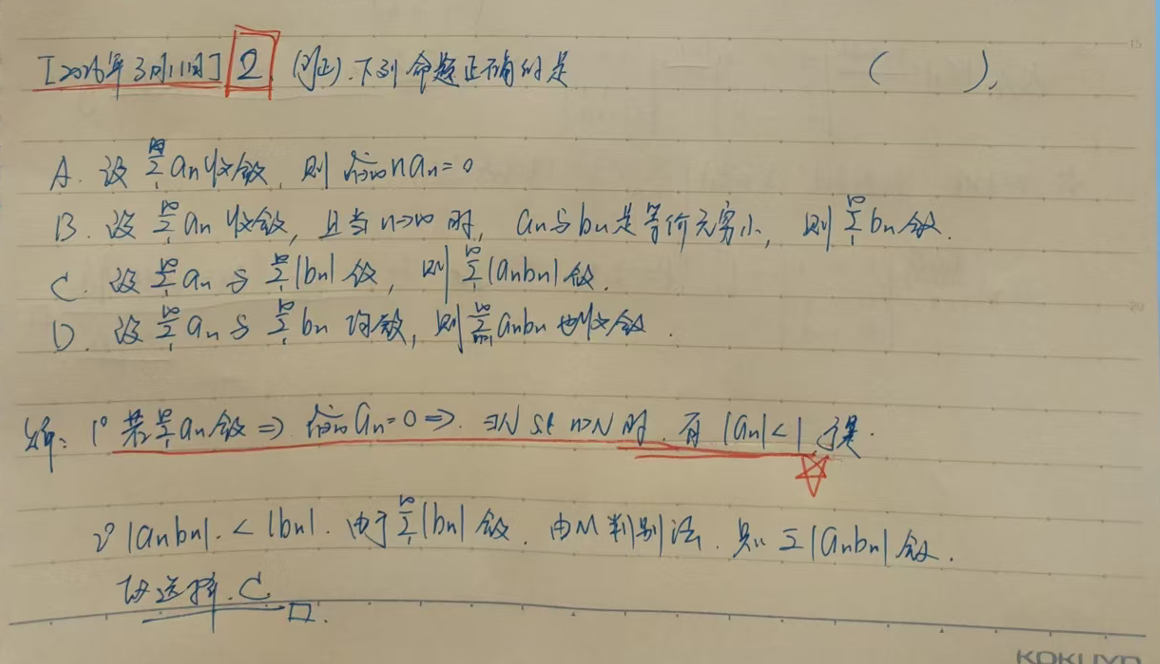 [2026年3月11日] 2. (例2). 下列命题正确的是 ( ).
A. 设 ∑₁^∞ aₙ 收敛, 则 lim n→∞ n aₙ = 0
B. 设 ∑₁^∞ aₙ 收敛, 且当 n→∞ 时, aₙ与bₙ是等价无穷小, 则 ∑₁^∞ bₙ 敛.
C. 设 ∑₁^∞ aₙ 与 ∑₁^∞ |bₙ| 敛, 则 ∑₁^∞ |aₙbₙ| 敛.
D. 设 ∑₁^∞ aₙ 与 ∑₁^∞ bₙ 均敛, 则 ∑ₙ₌₁^∞ aₙbₙ 也收敛.
解: 1° 若 ∑₁^∞ aₙ 敛 ⇒ lim n→∞ aₙ = 0 ⇒ ∃N st n>N 时, 有 |aₙ| < 1 于是.
2° |aₙbₙ| < |bₙ|. 由于 ∑₁^∞ |bₙ| 敛, 由M判别法, 则 ∑ |aₙbₙ| 敛.
故选择 C □.
KOKUYO